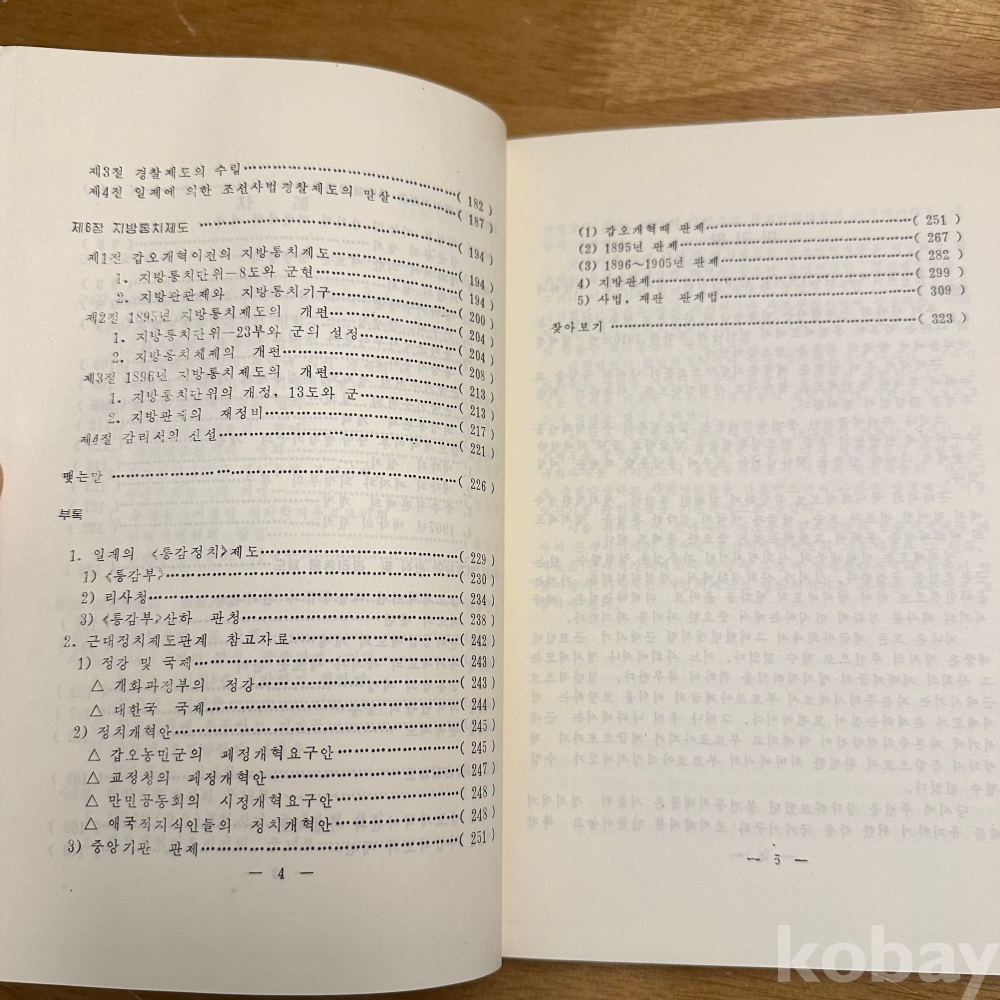 제3절 경찰제도의 수립 ……………………………( 182 )
제4절 일제에 의한 조선사법경찰제도의 말살 ……………( 187 )
제6장 지방통치제도 ……………………………( 194 )
제1절 갑오개혁이전의 지방통치제도 ……………………( 194 )
1. 지방통치단위—8도와 군현 ……………………( 194 )
2. 지방관관제와 지방통치기구 ……………………( 200 )
제2절 1895년 지방통치제도의 개편 ……………………( 204 )
1. 지방통치단위—23부와 군의 설정 ……………………( 204 )
2. 지방통치체제의 개편 ……………………( 208 )
제3절 1896년 지방통치제도의 개편 ……………………( 213 )
1. 지방통치단위의 개정, 13도와 군 ……………………( 213 )
2. 지방관제의 재정비 ……………………( 217 )
제4절 감리서의 신설 ……………………( 221 )
맺는말 ……………………………( 226 )
부록
1. 일제의 《통감정치》제도 ……………………( 229 )
1) 《통감부》 ……………………( 230 )
2) 리사청 ……………………( 234 )
3) 《통감부》산하 관청 ……………………( 238 )
2. 근대정치제도관계 참고자료 ……………………( 242 )
1) 정강 및 국제 ……………………( 243 )
△ 개화파정부의 정강 ……………………( 243 )
△ 대한국 국제 ……………………( 244 )
2) 정치개혁안 ……………………( 245 )
△ 갑오농민군의 페정개혁요구안 ……………………( 245 )
△ 교정청의 페정개혁안 ……………………( 247 )
△ 만민공동회의 시정개혁요구안 ……………………( 248 )
△ 애국적지식인들의 정치개혁안 ……………………( 248 )
3) 중앙기관 관제 ……………………( 251 )
— 4 —
(1) 갑오개혁때 관제 ……………………( 251 )
(2) 1895년 관제 ……………………( 267 )
(3) 1896～1905년 관제 ……………………( 282 )
4) 지방관제 ……………………( 299 )
5) 사법, 재판 관계법 ……………………( 309 )
찾아보기 ……………………( 323 )
— 5 —
kobay